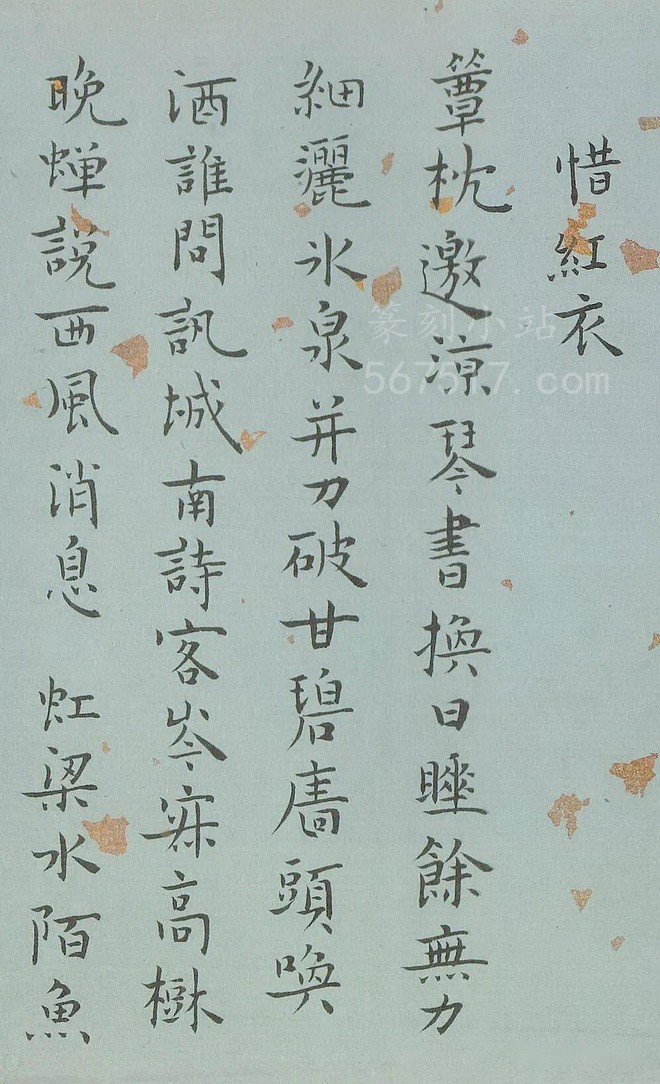 惜紅衣
簟枕邀涼琴書換日睡餘無力
細灑氷泉并刀破甘碧廧頭喚
酒誰問訊城南詩客岑寂高樹
晚蟬說西風消息 虹梁水陌魚
篆刻小站